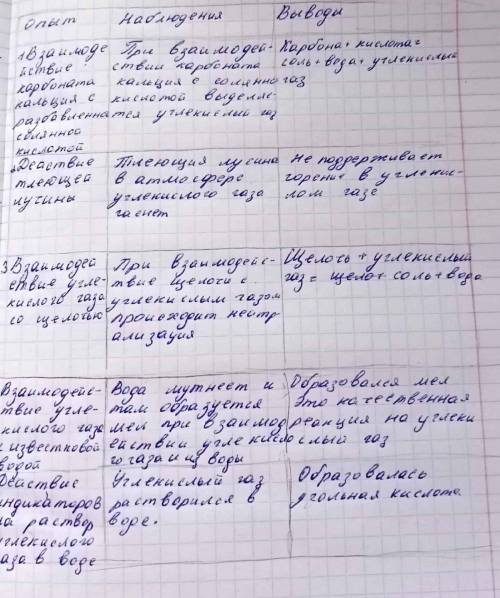 Опыт Наблюдения Выводы
1 Взаимоде
йствие
карбоната
кальция с
разбавленна
соляной
кислотой
При взаимодей-
ствии карбоната
кальция с соляно
кислотой выделяе-
тся углекислый газ
Карбона+ кислота=
соль+вода+углекислый
газ
Действие
тлеющей
лучины
Тлеющия лусина
в атмосфере
углекислого газа
гаснет
Не поддерживает
горения в углекис-
лом газе
3 Взаимодей
ствие угле-
кислого газа
со щелотью
При взаимодейс-
твие щелочи с
углекислым газом
происходит нейтр
ализация
Щелочь + углекислый
газ = щело+ соль+вода
Взаимодейс-
твие угле-
кислого газа
с известковой
водой
Вода мутнеет и
там образуется
мел при взаимод
ействии углекисло
го газа и из воды
Образовался мел
это качественная
реакция на углеки
слый газ
Действие
индикаторов
на раствор
углекислого
газа в воде
Углекислый газ
растворился в
воде.
Образовалась
угольная кислота